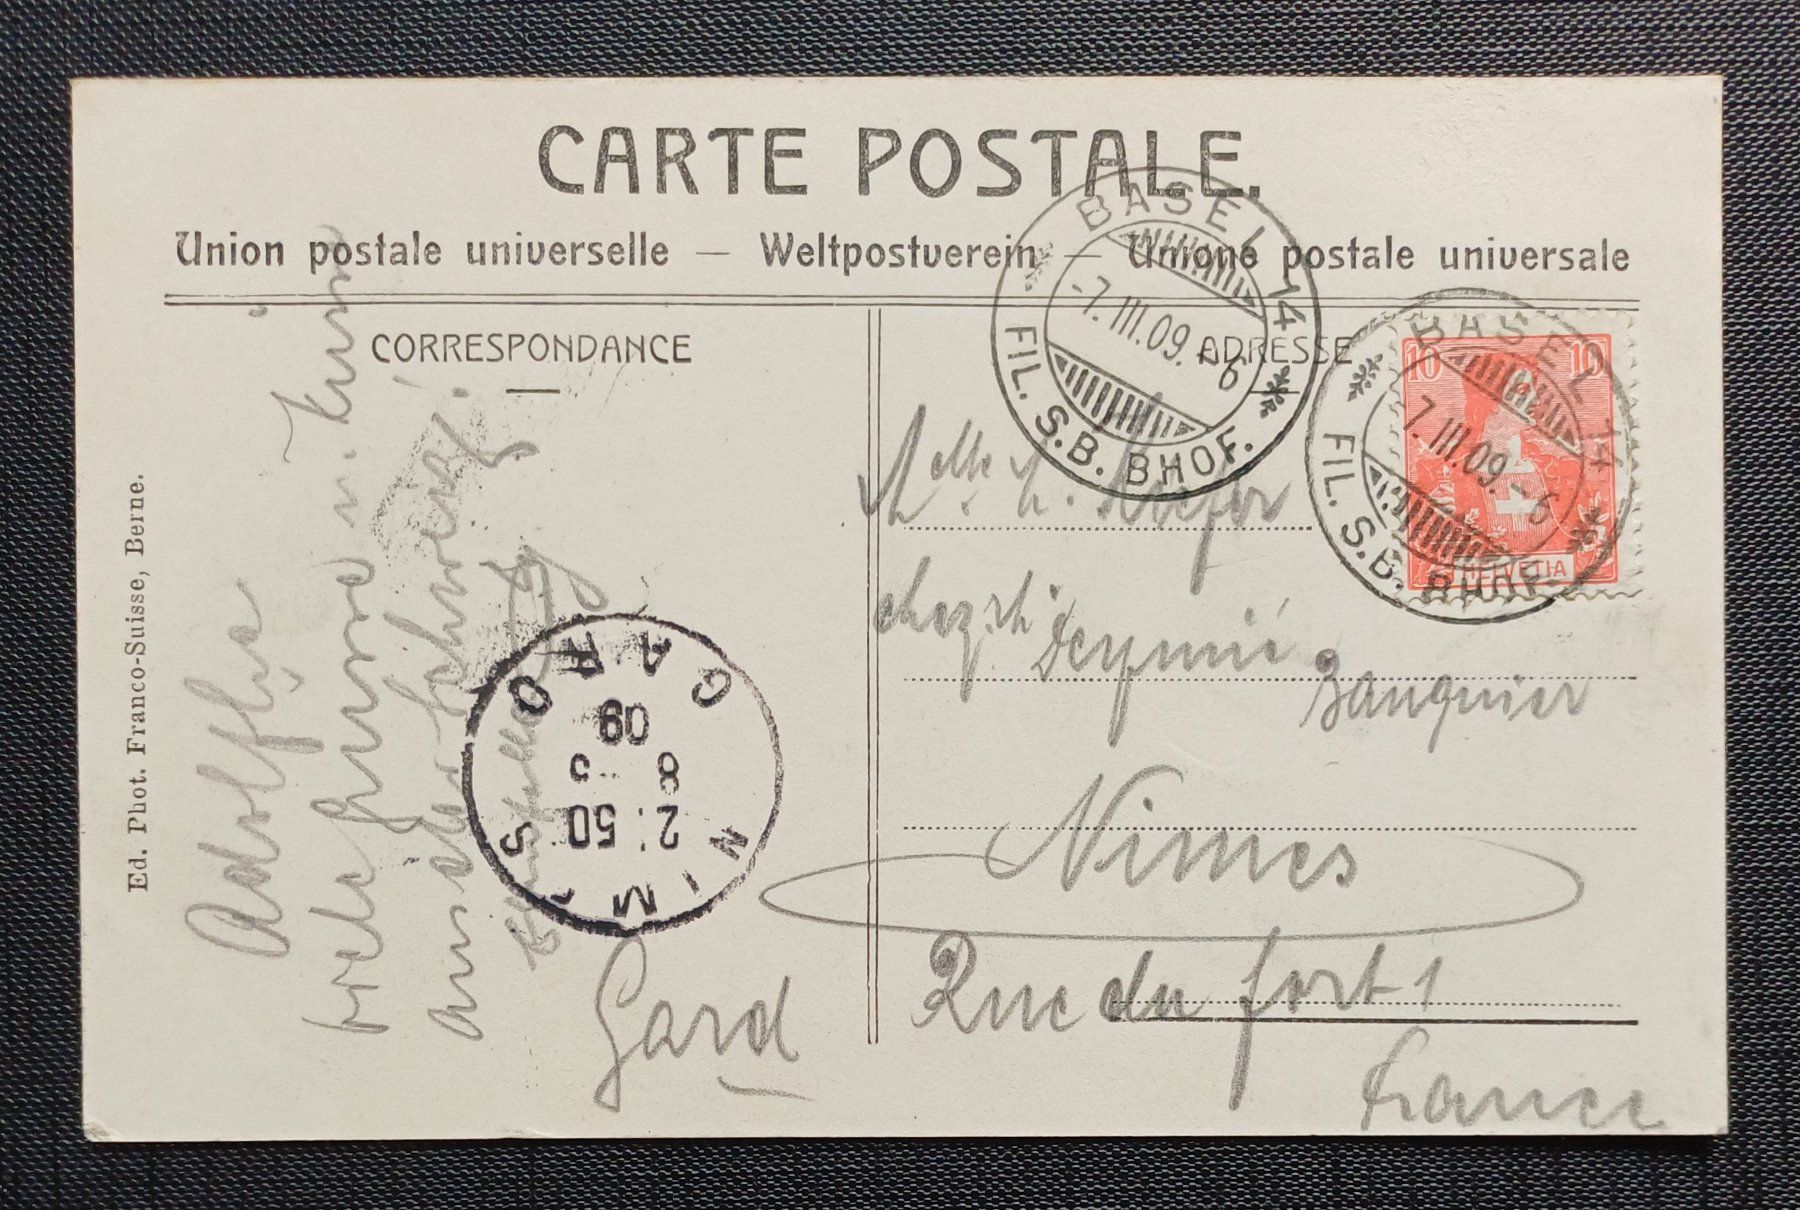 CARTE POSTALE.
Union postale universelle — Weltpostverein — Unione postale universale
CORRESPONDANCE
ADRESSE
BASEL 14
-7.III.09.-6
FIL. S.B. BHOF.
BASEL 14
-7.III.09.-6
FIL. S.B. BHOF.
10 10
HELVETIA
Melle
chez
Banquier
Nimes
Rue du fort 1
Gard
France
NIMES
2:50
8 3
09
GARD
viele
aus der Schweiz!
Ed. Phot. Franco-Suisse, Berne.